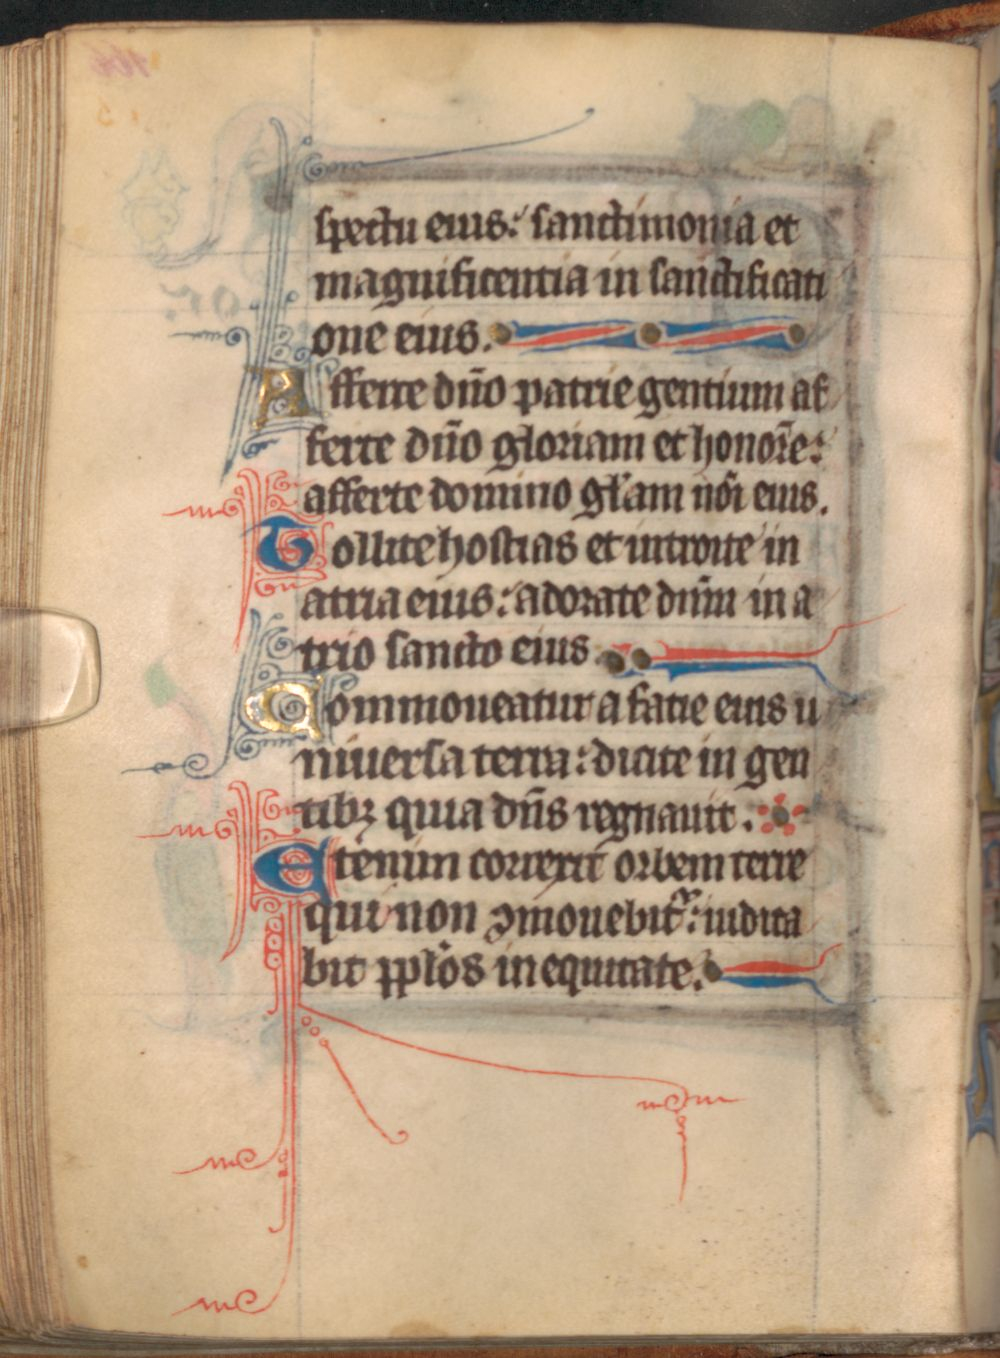 spectu eius: sanctimonia et
magnificentia in sanctificati
one eius.
Afferte dño patrie gentium af
ferte dño gloriam et honorē:
afferte domino gl̃am nōi eius.
Tollite hostias et introite in
atria eius: adorate dñm in a
trio sancto eius.
Commoueatur a facie eius u
niuersa terra: dicite in gen
tibꝫ quia dñs regnauit.
Etenim correxit orbem terre
qui non ꝯmouebit᷑: iudica
bit pplõs in equitate.